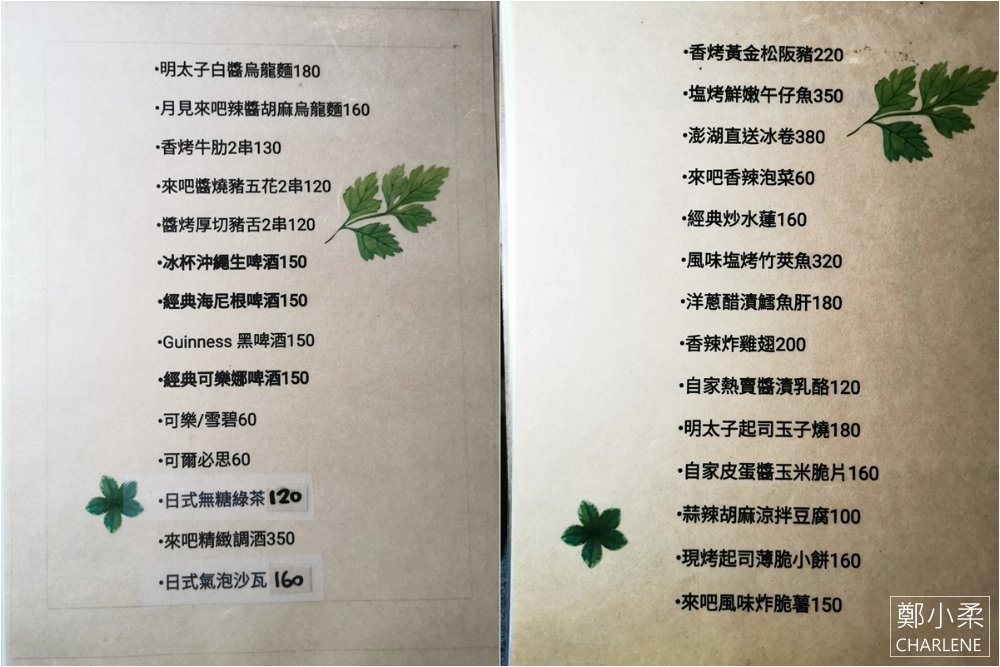 •明太子白醬烏龍麵180
•月見來吧辣醬胡麻烏龍麵160
•香烤牛肋2串130
•來吧醬燒豬五花2串120
•醬烤厚切豬舌2串120
•冰杯沖繩生啤酒150
•經典海尼根啤酒150
•Guinness 黑啤酒150
•經典可樂娜啤酒150
•可樂/雪碧60
•可爾必思60
•日式無糖綠茶 120
•來吧精緻調酒350
•日式氣泡沙瓦 160
•香烤黃金松阪豬220
•塩烤鮮嫩午仔魚350
•澎湖直送冰卷380
•來吧香辣泡菜60
•經典炒水蓮160
•風味塩烤竹莢魚320
•洋蔥醋漬鱈魚肝180
•香辣炸雞翅200
•自家熱賣醬漬乳酪120
•明太子起司玉子燒180
•自家皮蛋醬玉米脆片160
•蒜辣胡麻涼拌豆腐100
•現烤起司薄脆小餅160
•來吧風味炸脆薯150
鄭小柔
CHARLENE